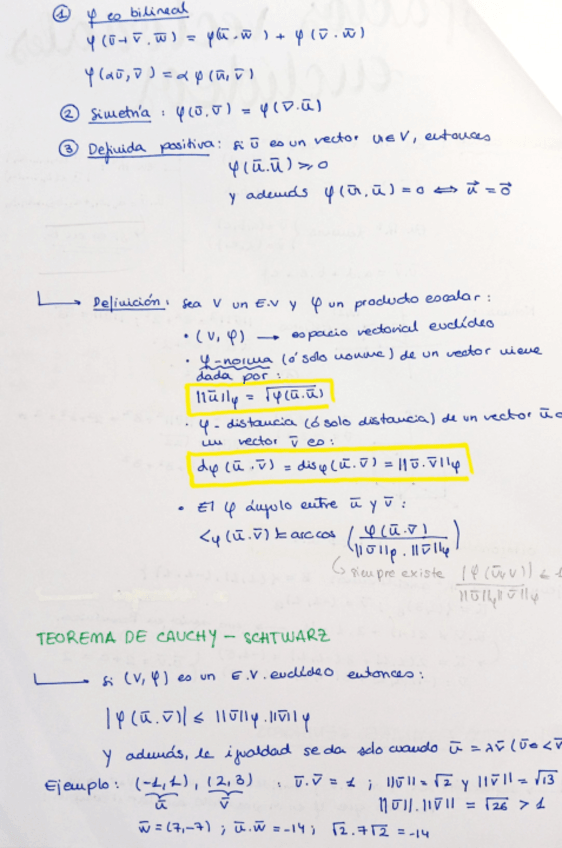 ① φ es bilineal
φ(ū+v̄.w̄) = φ(ū.w̄) + φ(v̄.w̄)
φ(αū,v̄) = α φ(ū,v̄)
② Simetría : φ(ū.v̄) = φ(v̄.ū)
③ Definida positiva: si ū es un vector u∈V, entonces
φ(ū.ū) ≥ 0
y además φ(ū.ū) = 0 ⟺ u⃗ = 0⃗
Definición: sea V un E.V y φ un producto escalar:
• (V,φ) → espacio vectorial euclídeo
• φ-norma (ó solo norma) de un vector viene
dada por:
||ū||φ = √φ(ū.ū)
• φ-distancia (ó solo distancia) de un vector ū a
un vector v̄ es:
dφ(ū.v̄) = disφ(ū.v̄) = ||ū.v̄||φ
• El φ ángulo entre ū y v̄:
<φ(ū.v̄) = arccos (φ(ū.v̄) / ||ū||φ.||v̄||φ)
siempre existe |φ(ū,v̄)| / ||ū||φ||v̄||φ ≤ 1
TEOREMA DE CAUCHY - SCHTWARZ
si (V,φ) es un E.V. euclídeo entonces:
|φ(ū.v̄)| ≤ ||ū||φ.||v̄||φ
Y además, la igualdad se da solo cuando ū = λv̄ (ū∈<v̄
Ejemplo: (-1,1), (2,3) : ū.v̄ = 1 ; ||ū|| = √2 y ||v̄|| = √13
ū v̄ ||ū||.||v̄|| = √26 > 1
w̄ = (7,-7) ; ū.w̄ = -14 ; √2.7√2 = -14